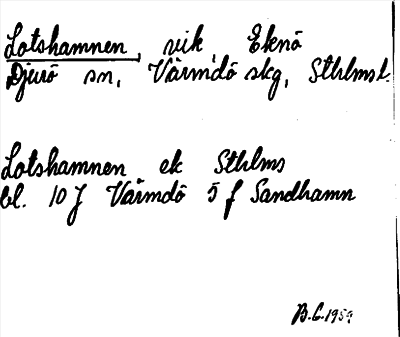 Lotshamnen, vik, Eknö
Djurö sn, Värmdö skg, Sthlms l.
Lotshamnen ek Sthlms
bl. 10 J Värmdö 5 f Sandhamn
B.G. 1959